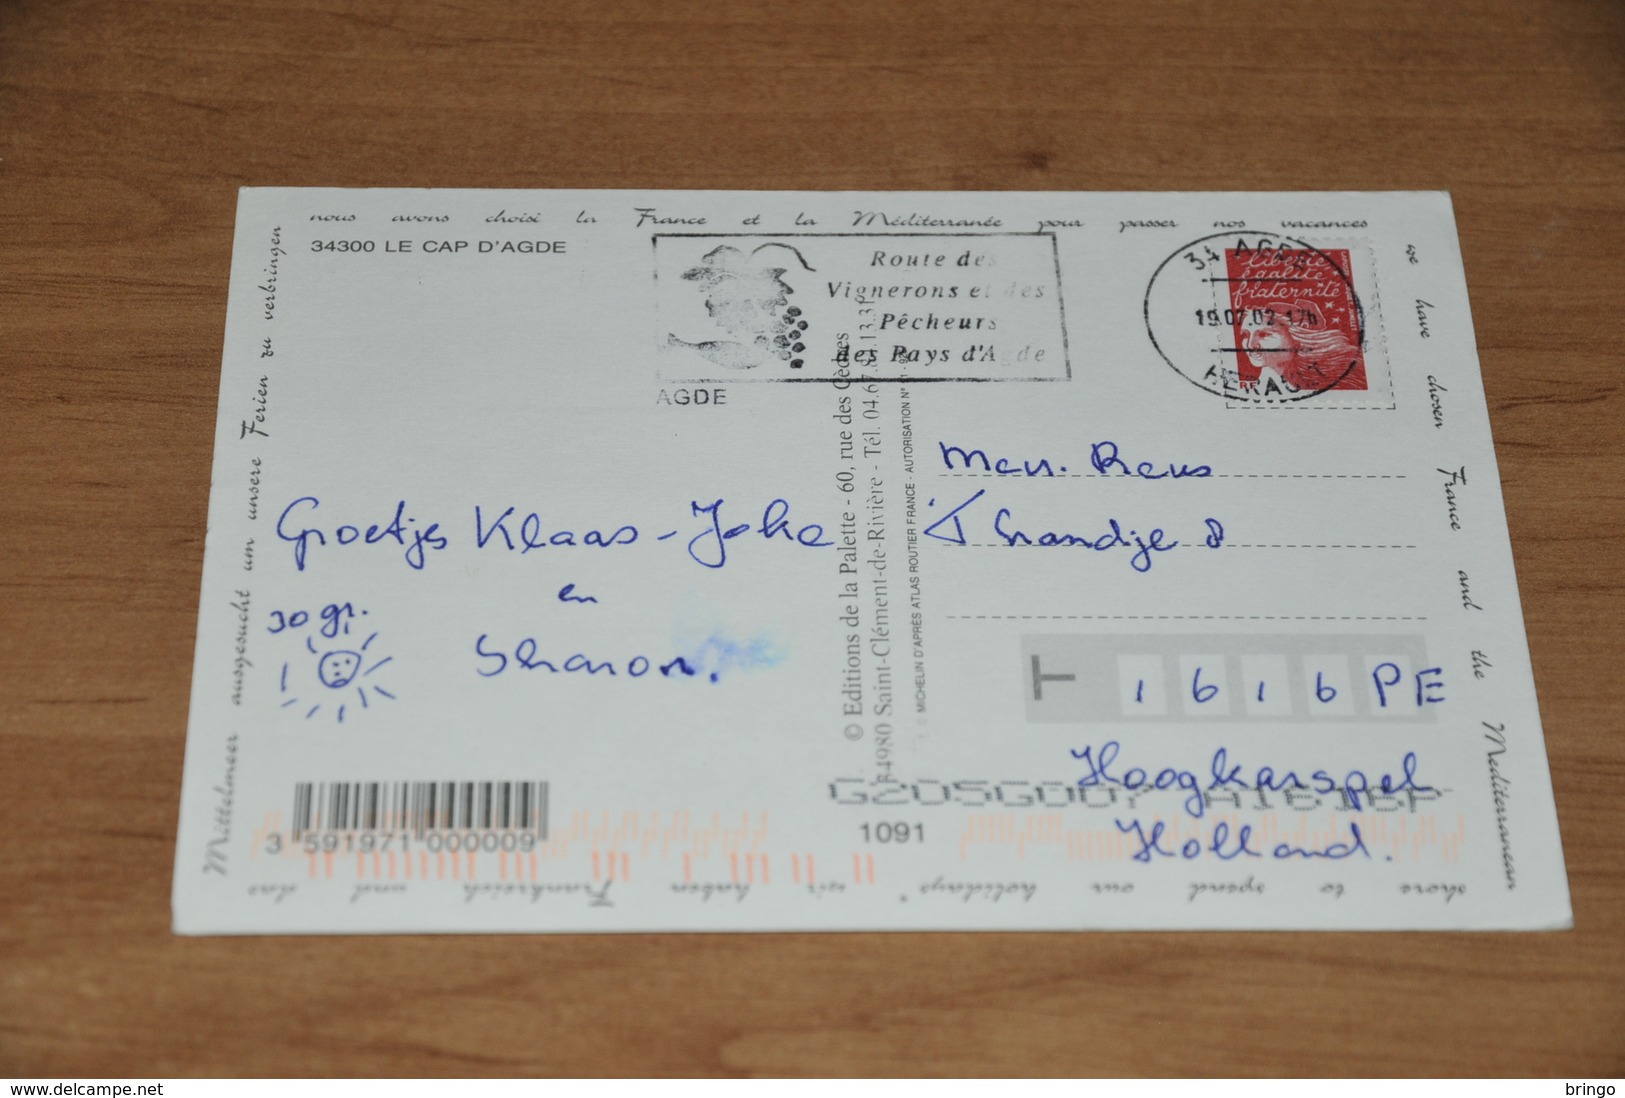 nous avons choisi la France et la Méditerranée pour passer nos vacances
34300 LE CAP D'AGDE
Route des
Vignerons et des
Pêcheurs
des Pays d'Agde
AGDE
34 AGDE
19.07.02 17h
HERAULT
liberté
égalité
fraternité
we have chosen France and the Mediterranean
shore to spend our holidays"
wir haben Frankreich und das
Mittelmeer ausgesucht um unsere Ferien zu verbringen
Groetjes Klaas-Joke
en
Sharon.
30 gr.
© Editions de la Palette - 60, rue des Cèdres
34980 Saint-Clément-de-Rivière - Tél. 04.67.84.13.31
MICHELIN D'APRÈS ATLAS ROUTIER FRANCE - AUTORISATION N°
'T Shandje 8
T
1616PE
Hoogkarspel
Holland.
3 591971 000009
1091
delcampe.net
bringo